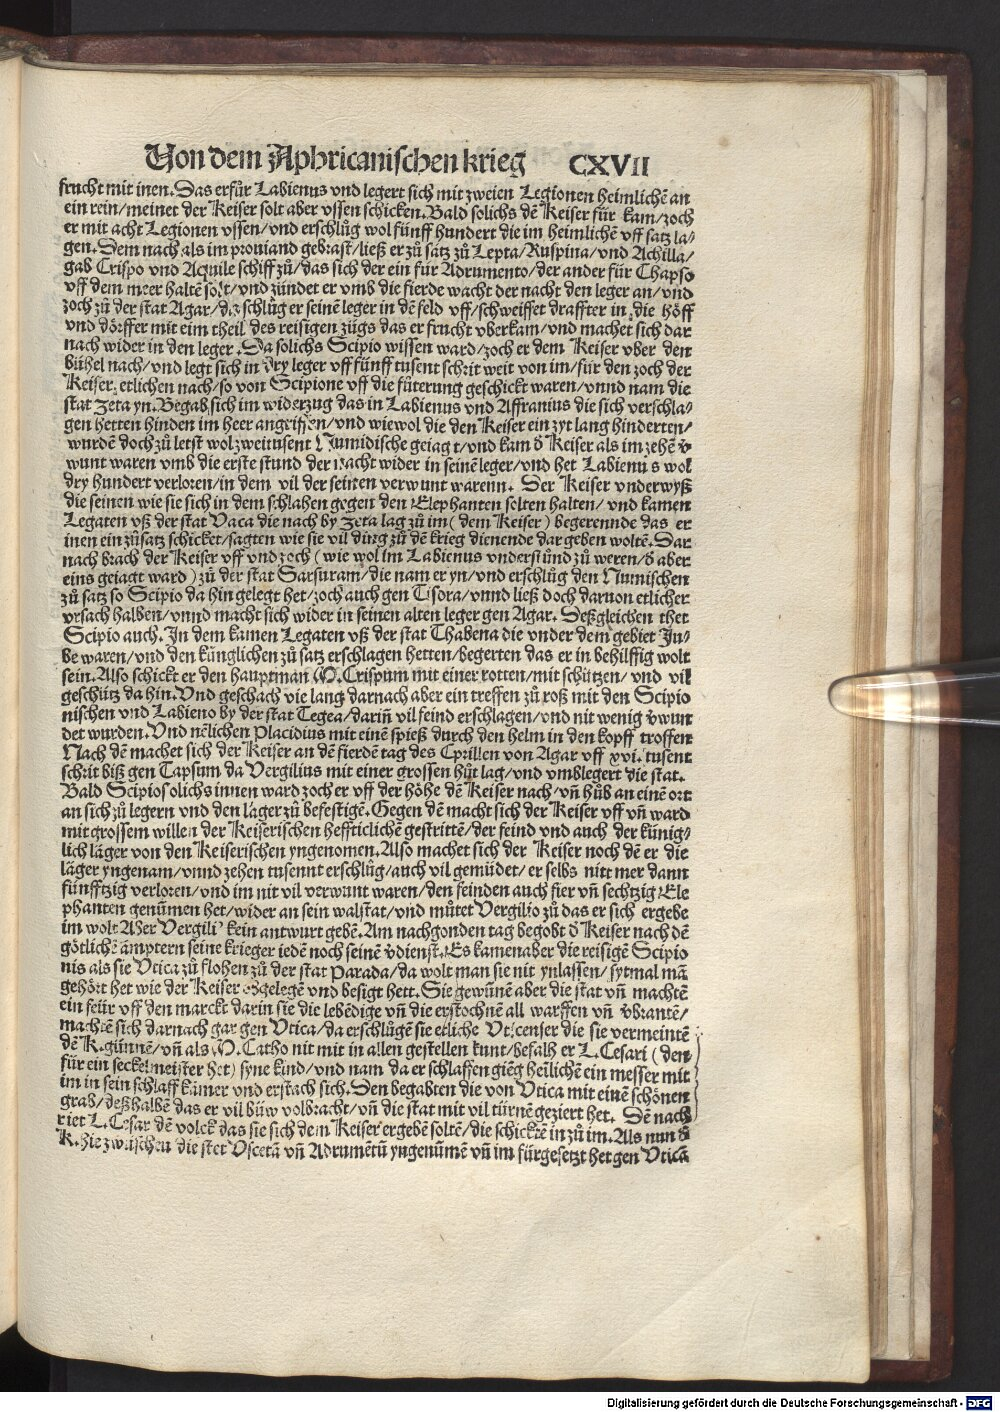 Von dem Aphricanischen krieg CXVII
frucht mit inen. Das erfůr Labienus vnd legert sich mit zweien Legionen heimlichẽ an
ein rein/meinet der Keiser solt aber vssen schicken. Bald solichs dẽ Keiser für kam/zoch
er mit acht Legionen vssen/vnd erschlůg wol fünff hundert die im heimlichẽ vff satz la⸗
gen. Dem nach als im prouiand gebrast/ließ er zů satz zů Lepta/Ruspina/vnd Achilla/
gab Crispo vnd Aquile schiff zů/das sich der ein für Adrumento/der ander für Chapso
vff dem meer haltẽ solt/vnd zündet er vmb die fierde wacht der nacht den leger an/vnd
zoch zů der stat Agar/da schlůg er seinẽ leger in dẽ feld vff/schweiffet draffter in die höff
vnd dörffer mit eim theil des reisigen zügs das er frucht vberkam/vnd machet sich dar
nach wider in den leger. Da solichs Scipio wissen ward/zoch er dem Keiser vber den
bühel nach/vnd legt sich in dry leger vff fünff tusent schrit weit von im/für den zoch der
Keiser etlichen nach/so von Scipione vff die fůterung geschickt waren/vnnd nam die
stat Zeta yn. Begab sich im widerzug das in Labienus vnd Affranius die sich verschla⸗
gen hetten hinden im heer angriffen/vnd wiewol die den Keiser ein zyt lang hinderten/
wurdẽ doch zů letst wol zwei tusent Numidische geiagt/vnd kam d̃ Keiser als im zehẽ v̈
wunt waren vmb die erste stund der nacht wider in seinẽ leger/vnd het Labienus wol
dry hundert verloren/in dem vil der seinen verwunt warenn. Der Keiser vnderwyß
die seinen wie sie sich in dem schlahen gegen den Elephanten solten halten/vnd kamen
Legaten vß der stat Vaca die nach by Zeta lag zů im (dem Keiser) begerennde das er
inen ein zůsatz schicket/sagten wie sie vil ding zů dẽ krieg dienende dar geben woltẽ. Dar
nach brach der Keiser vff vnd zoch (wie wol im Labienus vnderstůnd zů weren/d̃ aber
eins geiagt ward) zů der stat Sarsuram/die nam er yn/vnd erschlůg den Numischen
zů satz so Scipio da hin gelegt het/zoch auch gen Tisora/vnnd ließ doch daruon etlicher
vrsach halben/vnnd macht sich wider in seinen alten leger gen Agar. Deßgleichen thet
Scipio auch. In dem kamen Legaten vß der stat Thabena die vnder dem gebiet Ju⸗
be waren/vnd den künglichen zů satz erschlagen hetten/begerten das er in behilffig wolt
sein. Also schickt er den hauptman M. Crispum mit einer rotten/mit schützen/vnd vil
geschütz da hin. Vnd geschach vie lang darnach aber ein treffen zů roß mit den Scipio
nischen vnd Labieno by der stat Tegea/dariñ vil feind erschlagen/vnd nit wenig v̈wun
det wurden. Vnd nẽlichen Placidius mit einẽ spieß durch den helm in den kopff troffen
Nach dẽ machet sich der Keiser an dẽ fierdẽ tag des Cprillen von Agar vff xvi. tusent
schrit biß gen Tapsum da Vergilius mit einer grossen hůt lag/vnd vmblegert die stat.
Bald Scipios olichs innen ward zoch er vff der höhe dẽ Keiser nach/vñ hůb an einẽ ort
an sich zů legern vnd den läger zů befestigẽ. Gegen dẽ macht sich der Keiser vff vñ ward
mit grossem willen der Keiserischen heffticlichẽ gestrittẽ/der feind vnd auch der künig⸗
lich läger von den Keiserischen yngenomen. Also machet sich der Keiser noch dẽ er die
läger yngenam/vnnd zehen tusennt erschlůg/auch vil gemüdet/er selbs nitt mer dann
fünfftzig verloren/vnd im nit vil verwunt waren/den feinden auch fier vñ sechtzig Ele
phanten genũmen het/wider an sein walstat/vnd můtet Vergilio zů das er sich ergebe
im wolt Aber Vergili' kein antwurt gebẽ. Am nachgonden tag begobt d̃ Keiser nach dẽ
götlichẽ ämptern seine krieger iedẽ noch seinẽ v̈dienst. Es kamen aber die reisigẽ Scipio
nis als sie Vtica zů flohen zů der stat Parada/da wolt man sie nit ynlassen/sytmal mã
gehört het wie der Keiser obgelegẽ vnd besigt hett. Sie gewũnẽ aber die stat vñ machtẽ
ein feür vff den marckt darin sie die lebẽdige vñ die erstochnẽ all warffen vñ v̈brantẽ/
machtẽ sich darnach gar gen Vtica/da erschlůgẽ sie etliche Vticenser die sie vermeintẽ
dẽ K. günnẽ/vñ als M. Catho nit mit in allen gestellen kunt/befalh er L. Cesari (den
für ein seckelmeister het) syne kind/vnd nam da er schlaffen gieng heilichẽ ein messer mit
im in sein schlaff kamer vnd erstach sich. Den begabten die von Vtica mit einẽ schönen
grab/deßhalbẽ das er vil büw volbracht/vñ die stat mit vil türnẽ geziert het. Dẽ nach
riet L. Cesar dẽ volck das sie sich dem Keiser ergebẽ soltẽ/die schicktẽ in zů im. Als nun d̃
K. hie zwüschen die stet Vscetã vñ Adrumẽtũ yngenũmẽ vñ im fürgesetzt het gen Vtica
Digitalisierung gefördert durch die Deutsche Forschungsgemeinschaft - DFG